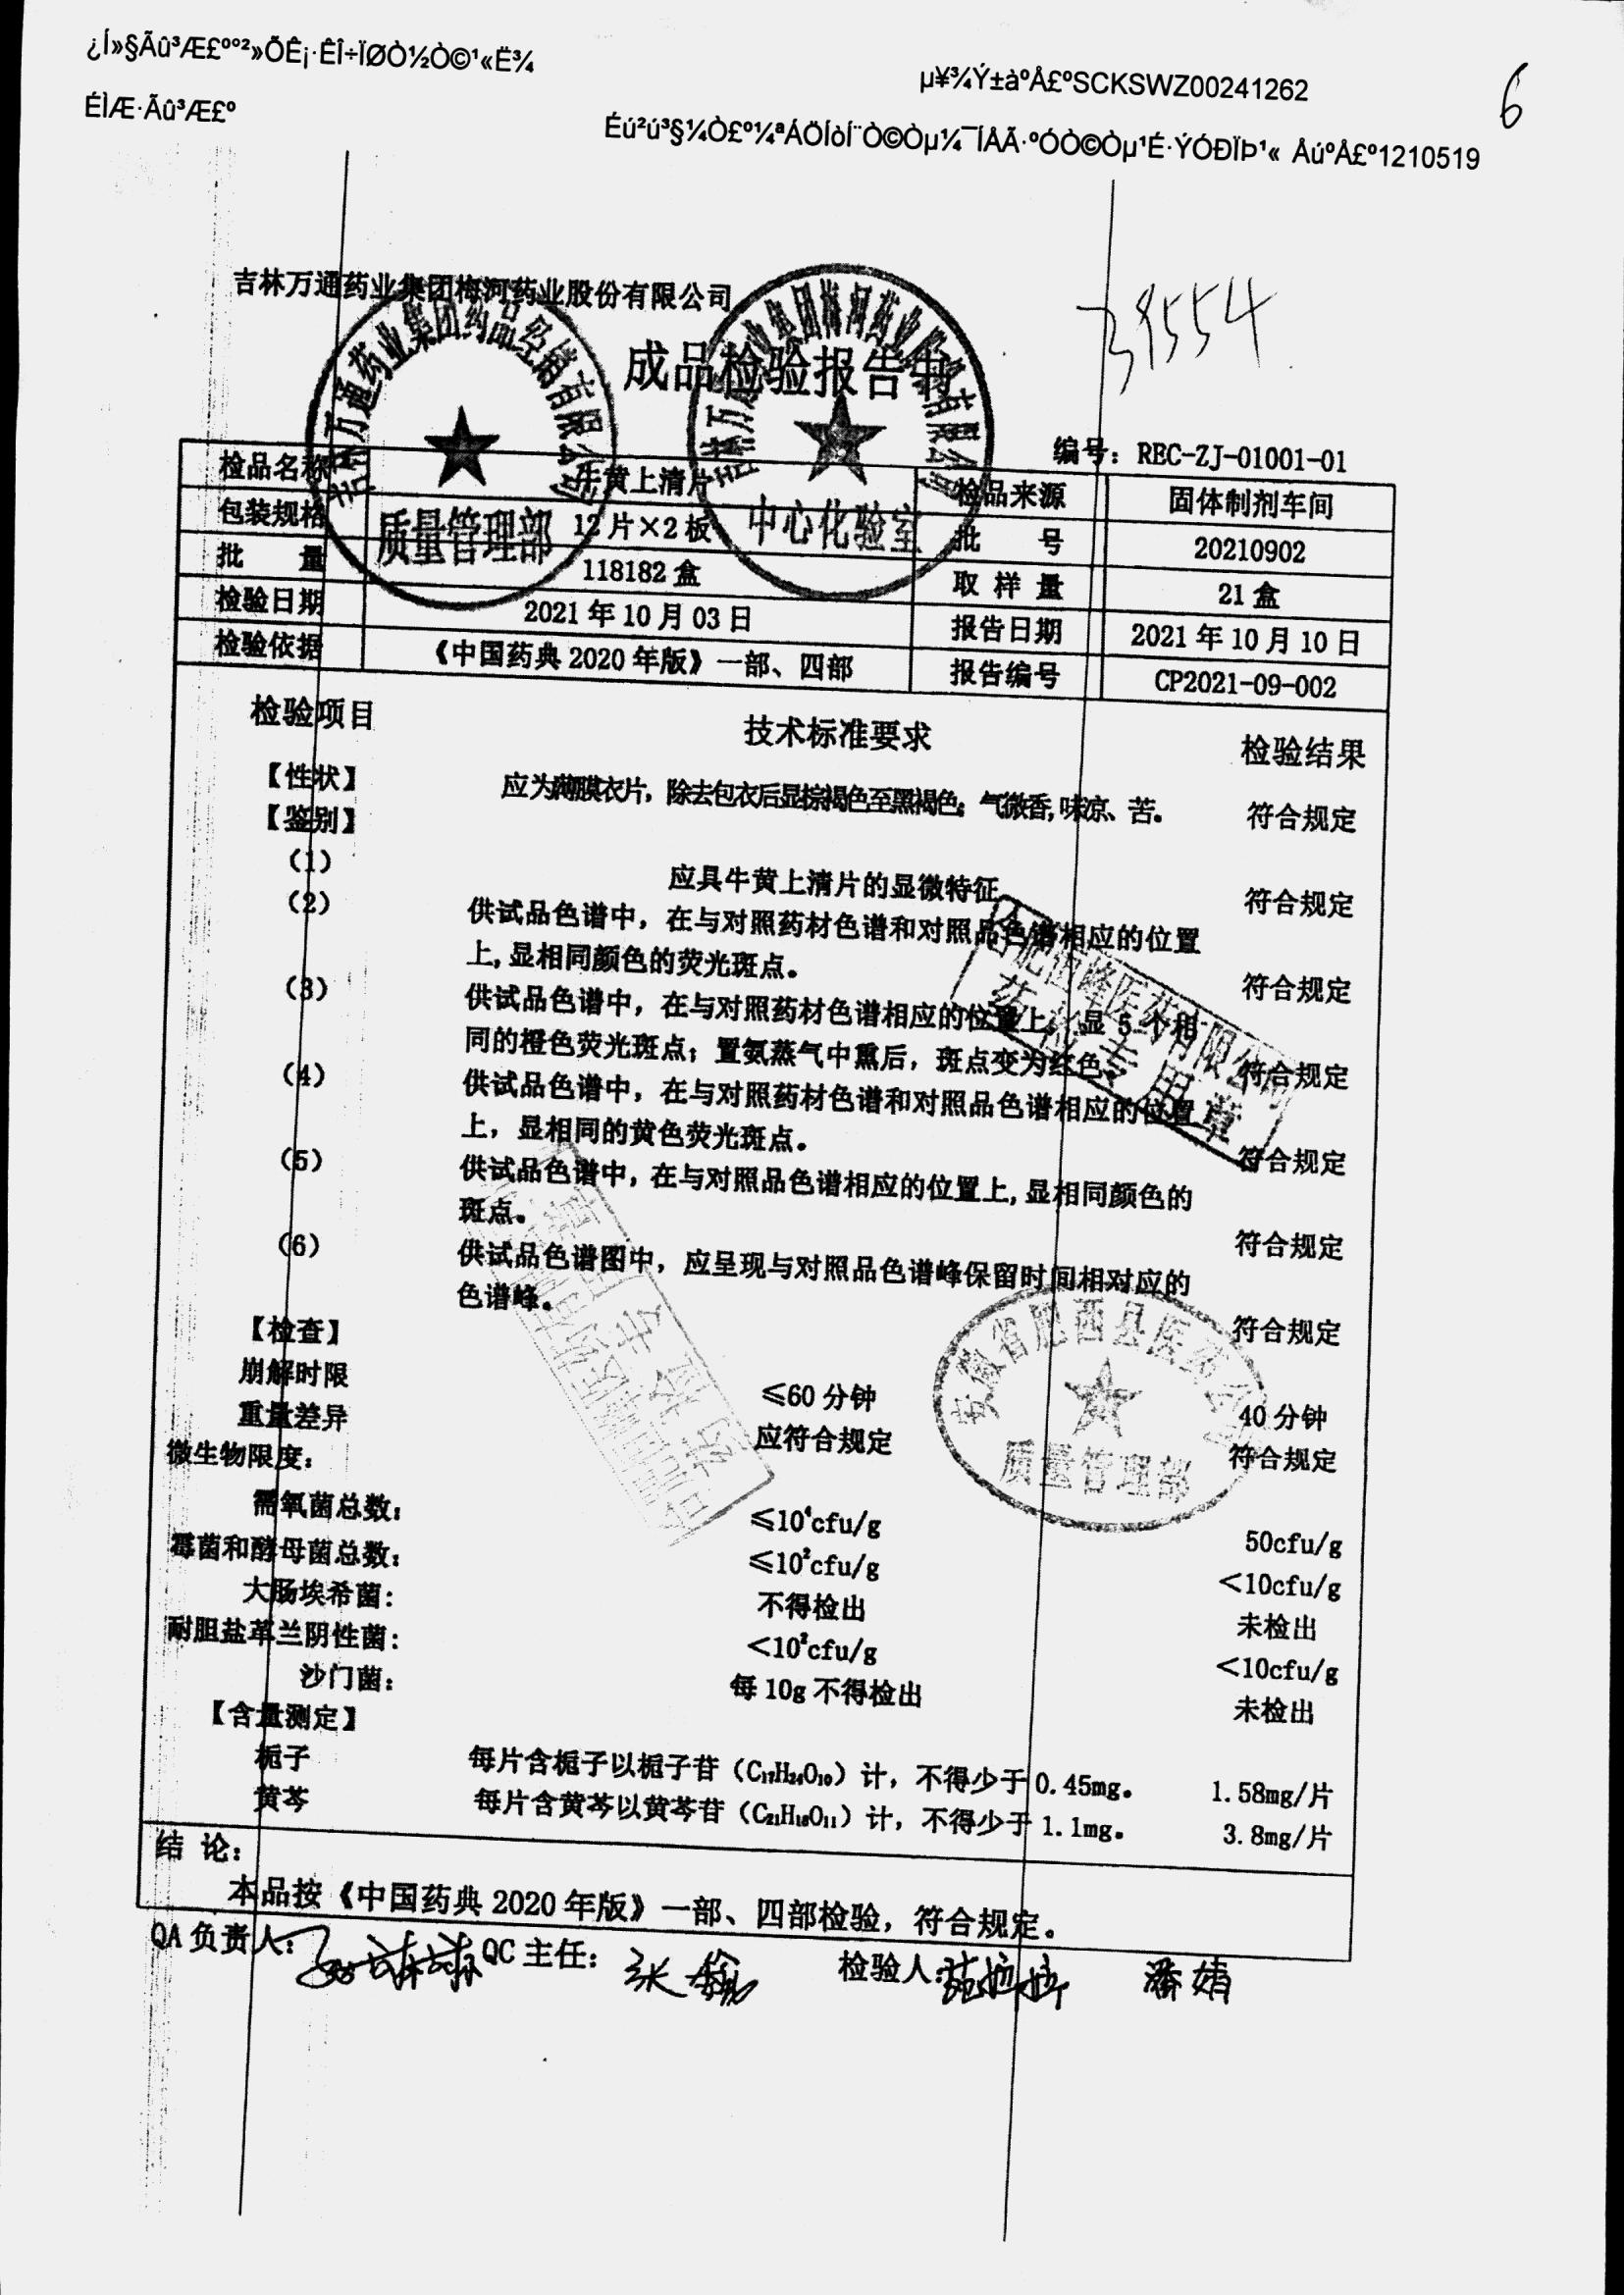 ¿Í»§Ãû³Æ£º°²»ÕÊ¡·ÊÎ÷ÏØÒ½Ò©¹«Ë¾
µ¥¾Ý±àºÅ£ºSCKSWZ00241262
6
ÉÌÆ·Ãû³Æ£º
Éú²ú³§¼Ò£º¼ªÁÖÍòÍ¨Ò©Òµ¼¯ÍÅÃ·ºÓÒ©Òµ¹É·ÝÓÐÏÞ¹« ÅúºÅ£º1210519
吉林万通药业集团梅河药业股份有限公司
39554
成品检验报告书
编号：REC-ZJ-01001-01
吉林万通药业集团药品经销有限公司
质量管理部
吉林万通药业集团梅河药业股份有限公司
中心化验室
检品名称 牛黄上清片 检品来源 固体制剂车间
包装规格 12片×2板 批 号 20210902
批 量 118182盒 取 样 量 21盒
检验日期 2021年10月03日 报告日期 2021年10月10日
检验依据 《中国药典2020年版》一部、四部 报告编号 CP2021-09-002
检验项目 技术标准要求 检验结果
【性状】 应为薄膜衣片，除去包衣后显棕褐色至黑褐色；气微香,味凉、苦。 符合规定
【鉴别】
（1） 应具牛黄上清片的显微特征。 符合规定
（2） 供试品色谱中，在与对照药材色谱和对照品色谱相应的位置
上,显相同颜色的荧光斑点。 符合规定
（3） 供试品色谱中，在与对照药材色谱相应的位置上，显5个相
同的橙色荧光斑点；置氨蒸气中熏后，斑点变为红色。 符合规定
（4） 供试品色谱中，在与对照药材色谱和对照品色谱相应的位置
上，显相同的黄色荧光斑点。 符合规定
（5） 供试品色谱中，在与对照品色谱相应的位置上,显相同颜色的
斑点。 符合规定
（6） 供试品色谱图中，应呈现与对照品色谱峰保留时间相对应的
色谱峰。 符合规定
【检查】
崩解时限 ≤60分钟 40分钟
重量差异 应符合规定 符合规定
微生物限度：
需氧菌总数： ≤10⁴cfu/g 50cfu/g
霉菌和酵母菌总数： ≤10²cfu/g <10cfu/g
大肠埃希菌： 不得检出 未检出
耐胆盐革兰阴性菌： <10²cfu/g <10cfu/g
沙门菌： 每10g不得检出 未检出
【含量测定】
栀子 每片含栀子以栀子苷（C₁₇H₂₄O₁₀）计，不得少于0.45mg。 1.58mg/片
黄芩 每片含黄芩以黄芩苷（C₂₁H₁₈O₁₁）计，不得少于1.1mg。 3.8mg/片
安徽省肥西县医药公司
质量管理部
药检专用章
结 论：
本品按《中国药典2020年版》一部、四部检验，符合规定。
QA负责人： QC主任：张 检验人： 潘娟